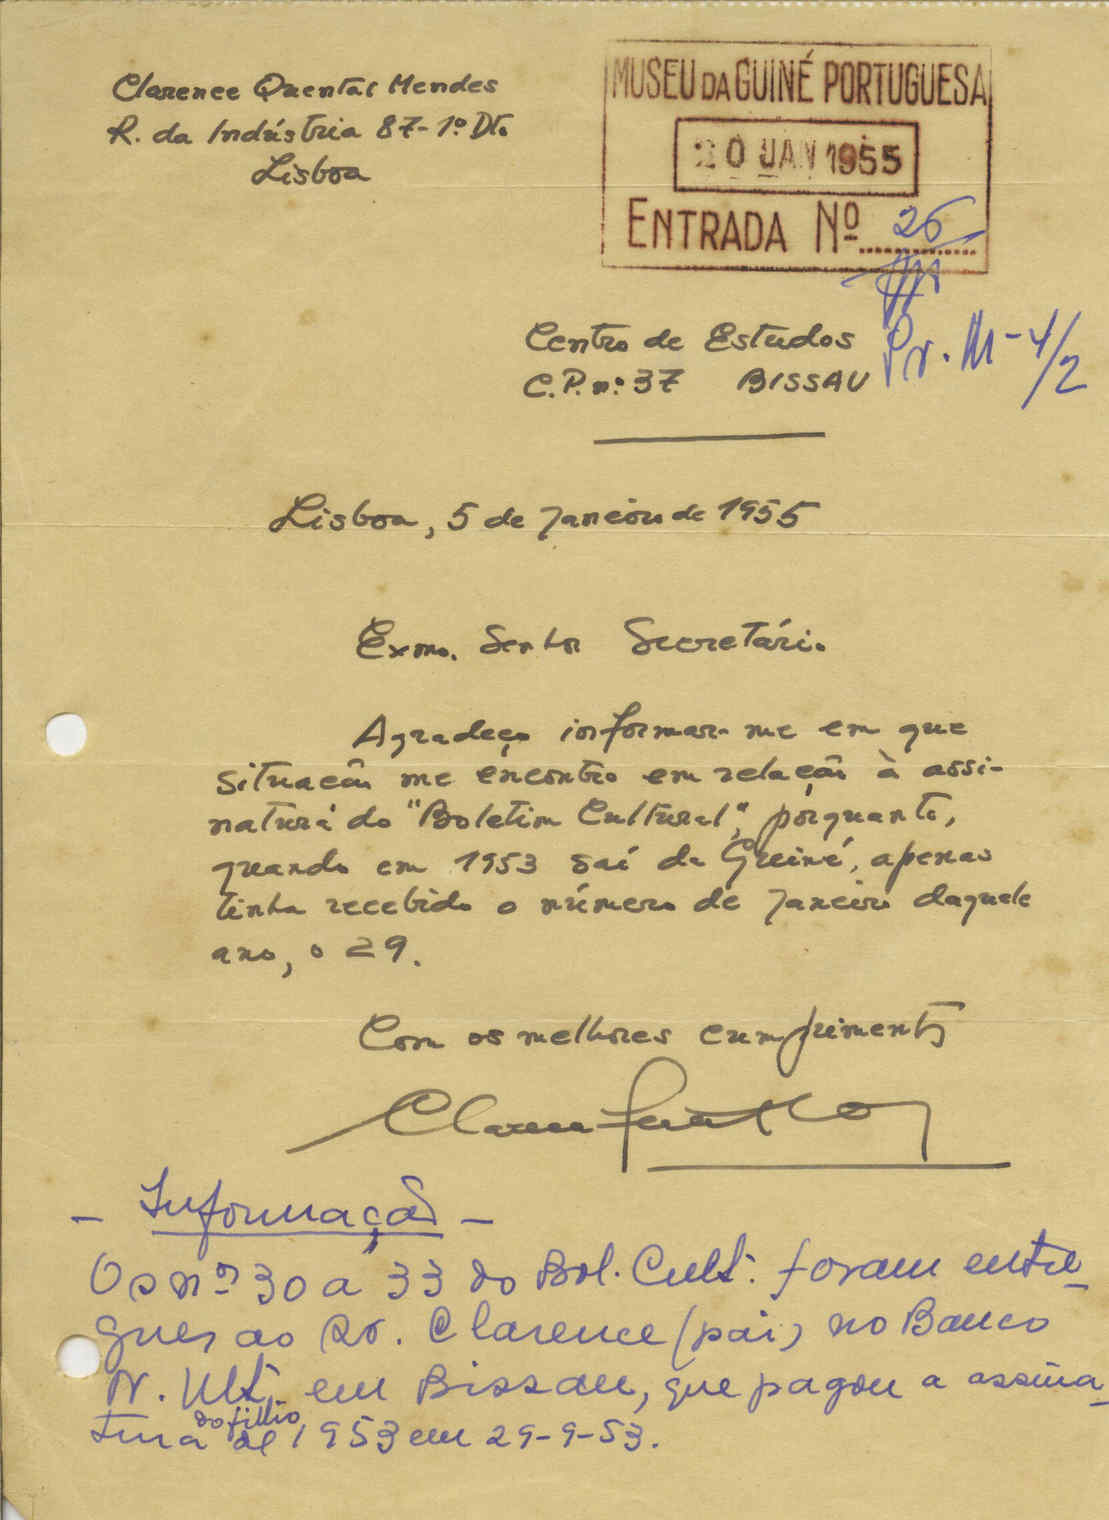 Clarence Quental Mendes
R. da Indústria 87-1º Dto
Lisboa
MUSEU DA GUINÉ PORTUGUESA
20 JAN 1955
ENTRADA Nº 26
Centro de Estudos
C.P. nº 37 BISSAU
Pr. M-4/2
Lisboa, 5 de Janeiro de 1955
Exmo. Senhor Secretário
Agradeço informar-me em que
situação me encontro em relação à assi-
natura do "Boletim Cultural", porquanto,
quando em 1953 saí da Guiné, apenas
tinha recebido o número de Janeiro daquele
ano, o 29.
Com os melhores cumprimentos
- Informação -
Os nºs 30 a 33 do Bol. Cult. foram entre-
gues ao Sr. Clarence (pai) no Banco
N. Ult. em Bissau, que pagou a assina-
do filho
tura de 1953 em 29-9-53.